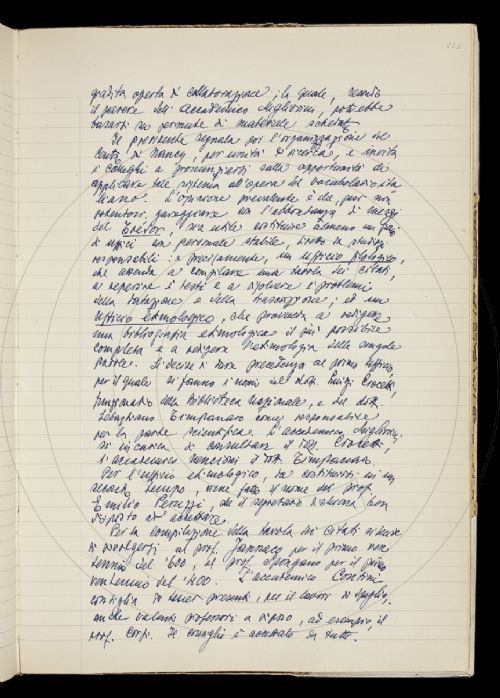 221
gradita offerta di collaborazione; la quale, secondo
il parere dell'Accademico Migliorini, potrebbe
basarsi su permute di materiale schedato.
Il presidente segnala poi l'organizzazione del
Centro di Nancy, per unità di ricerca, e invita
i colleghi a pronunziarsi sulla opportunità di
applicare tale sistema all'opera del vocabolario ita
liano. L'opinione prevalente è che, pur non
potendosi gareggiare con l'abbondanza di mezzi
del Centro, sia utile costituire almeno un paio
di uffici con personale stabile, diretti da studiosi
responsabili: e precisamente, un ufficio filologico,
che attenda a compilare una tavola dei citati,
a reperire i testi e a risolvere i problemi
della datazione e della trascrizione; ed un
ufficio etimologico, che provveda a redigere
una bibliografia etimologica il più possibile
completa e a redigere l'etimologia delle singole
parole. Si decide di dare precedenza al primo ufficio,
per il quale si fanno i nomi del dott. Luigi Crocetti,
funzionario della Biblioteca Nazionale, e del dott.
Sebastiano Timpanaro come responsabile
per la parte scientifica. L'accademico Migliorini
si incarica di consultare il dott. Crocetti,
l'accademico Nencioni il dott. Timpanaro.
Per l'ufficio etimologico, da costituirsi in un
secondo tempo, viene fatto il nome del prof.
Emilio Peruzzi, che il segretario dichiara ben
disposto ad accettare.
Per la compilazione della tavola dei citati si decide
di rivolgersi al prof. Jannaco per il primo ven
tennio del '600, al prof. Spongano per il primo
ventennio del '400. L'accademico Contini
consiglia di tener presenti, per il lavoro di spoglio,
anche valenti professori a riposo, ad esempio, il
prof. Corsi. Il consiglio è accettato da tutti.